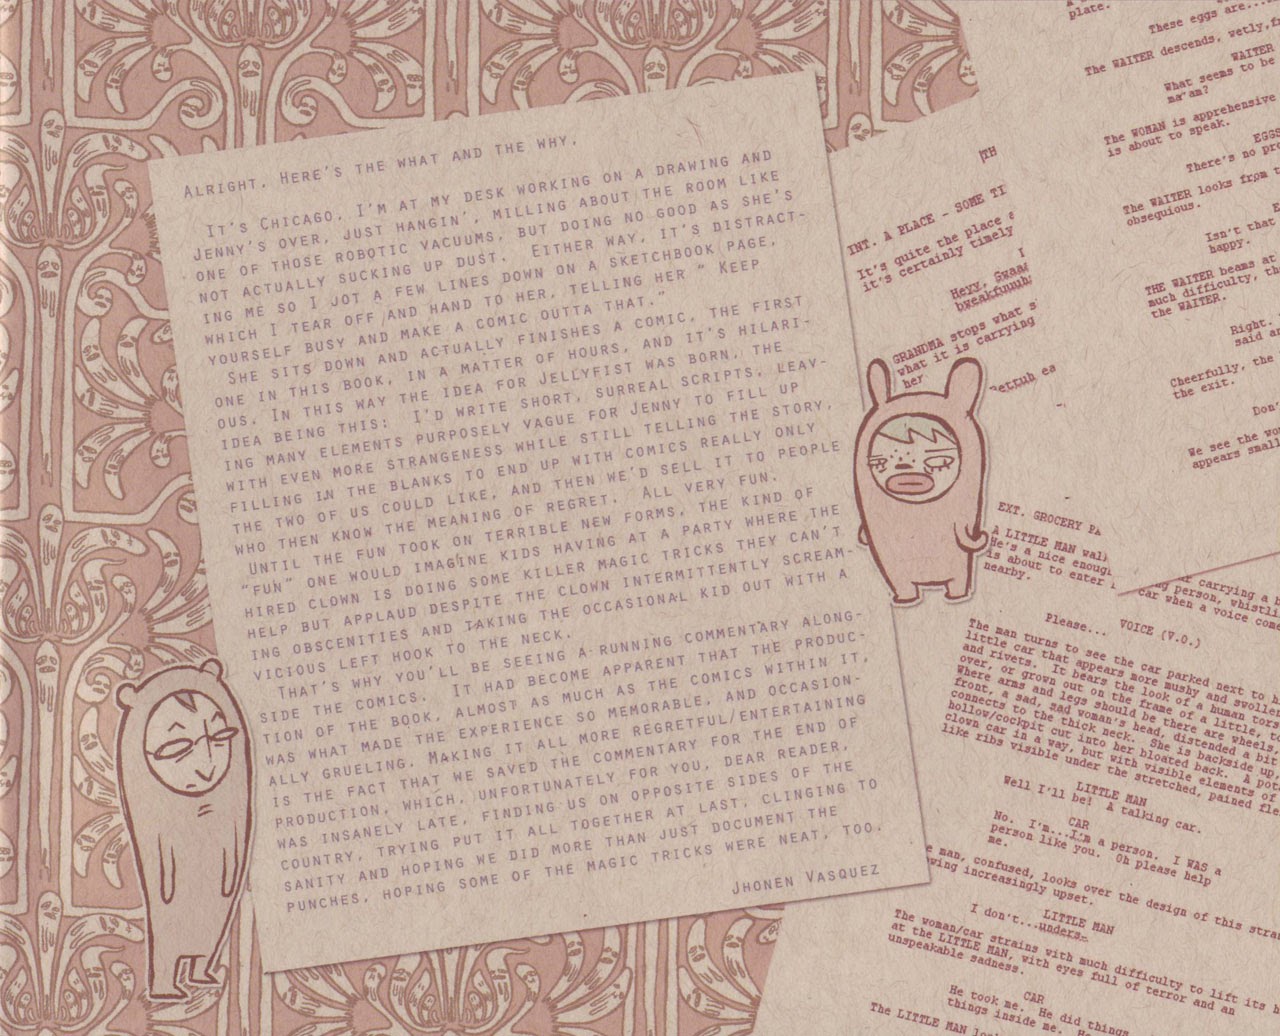 ALRIGHT. HERE'S THE WHAT AND THE WHY.
IT'S CHICAGO. I'M AT MY DESK WORKING ON A DRAWING AND
JENNY'S OVER, JUST HANGIN', MILLING ABOUT THE ROOM LIKE
ONE OF THOSE ROBOTIC VACUUMS, BUT DOING NO GOOD AS SHE'S
NOT ACTUALLY SUCKING UP DUST. EITHER WAY, IT'S DISTRACT-
ING ME SO I JOT A FEW LINES DOWN ON A SKETCHBOOK PAGE,
WHICH I TEAR OFF AND HAND TO HER, TELLING HER " KEEP
YOURSELF BUSY AND MAKE A COMIC OUTTA THAT."
SHE SITS DOWN AND ACTUALLY FINISHES A COMIC, THE FIRST
ONE IN THIS BOOK, IN A MATTER OF HOURS, AND IT'S HILARI-
OUS. IN THIS WAY THE IDEA FOR JELLYFIST WAS BORN, THE
IDEA BEING THIS: I'D WRITE SHORT, SURREAL SCRIPTS, LEAV-
ING MANY ELEMENTS PURPOSELY VAGUE FOR JENNY TO FILL UP
WITH EVEN MORE STRANGENESS WHILE STILL TELLING THE STORY,
FILLING IN THE BLANKS TO END UP WITH COMICS REALLY ONLY
THE TWO OF US COULD LIKE, AND THEN WE'D SELL IT TO PEOPLE
WHO THEN KNOW THE MEANING OF REGRET. ALL VERY FUN.
UNTIL THE FUN TOOK ON TERRIBLE NEW FORMS, THE KIND OF
"FUN" ONE WOULD IMAGINE KIDS HAVING AT A PARTY WHERE THE
HIRED CLOWN IS DOING SOME KILLER MAGIC TRICKS THEY CAN'T
HELP BUT APPLAUD DESPITE THE CLOWN INTERMITTENTLY SCREAM-
ING OBSCENITIES AND TAKING THE OCCASIONAL KID OUT WITH A
VICIOUS LEFT HOOK TO THE NECK.
THAT'S WHY YOU'LL BE SEEING A RUNNING COMMENTARY ALONG-
SIDE THE COMICS. IT HAD BECOME APPARENT THAT THE PRODUC-
TION OF THE BOOK, ALMOST AS MUCH AS THE COMICS WITHIN IT,
WAS WHAT MADE THE EXPERIENCE SO MEMORABLE, AND OCCASION-
ALLY GRUELING. MAKING IT ALL MORE REGRETFUL/ENTERTAINING
IS THE FACT THAT WE SAVED THE COMMENTARY FOR THE END OF
PRODUCTION, WHICH, UNFORTUNATELY FOR YOU, DEAR READER,
WAS INSANELY LATE, FINDING US ON OPPOSITE SIDES OF THE
COUNTRY, TRYING PUT IT ALL TOGETHER AT LAST, CLINGING TO
SANITY AND HOPING WE DID MORE THAN JUST DOCUMENT THE
PUNCHES, HOPING SOME OF THE MAGIC TRICKS WERE NEAT, TOO.
JHONEN VASQUEZ
plate.
These eggs are...
The WAITER descends, vetly,
WAITER
What seems to be
ma'am?
The WOMAN is apprehensive
is about to speak.
EGGS
There's no pro
The WAITER looks from t
obsequious.
Isn't that
happy.
The WAITER beams at
much difficulty, th
the WAITER.
Right.
said a
Cheerfully, the
the exit.
Don'
We see the wo
appears small
TH
INT. A PLACE - SOME TI
It's quite the place a
it's certainly timely
Heyy, Gwaa
bweakfuuuh
GRANDMA stops what s
what it is carrying
her
EXT. GROCERY PA
A LITTLE MAN wal
He's a nice enoug
is about to enter
nearby.
car carrying a b
ng person, whistli
car when a voice come
VOICE (V.O.)
Please...
The man turns to see the car parked next to h
little car that appears more mushy and swolle
and rivets. It bears the look of a human tors
over, or grown out on the frame of a little, to
Where arms and legs should be there are wheels
front, a sad, sad woman's head, distended a bit
connects to the thick neck. She is backside up,
hollow/cockpit cut into her bloated back. A pot
clown car in a way, but with visible elements of
like ribs visible under the stretched, pained fle
LITTLE MAN
Well I'll be! A talking car.
CAR
No. I'm...I'm a person. I WAS a
person like you. Oh please help
me.
e man, confused, looks over the design of this stran
wing increasingly upset.
LITTLE MAN
I don't...unders-
The woman/car strains with much difficulty to lift its h
at the LITTLE MAN, with eyes full of terror and an
unspeakable sadness.
CAR
He took me. He did things
things inside me. He
The LITTLE MAN look